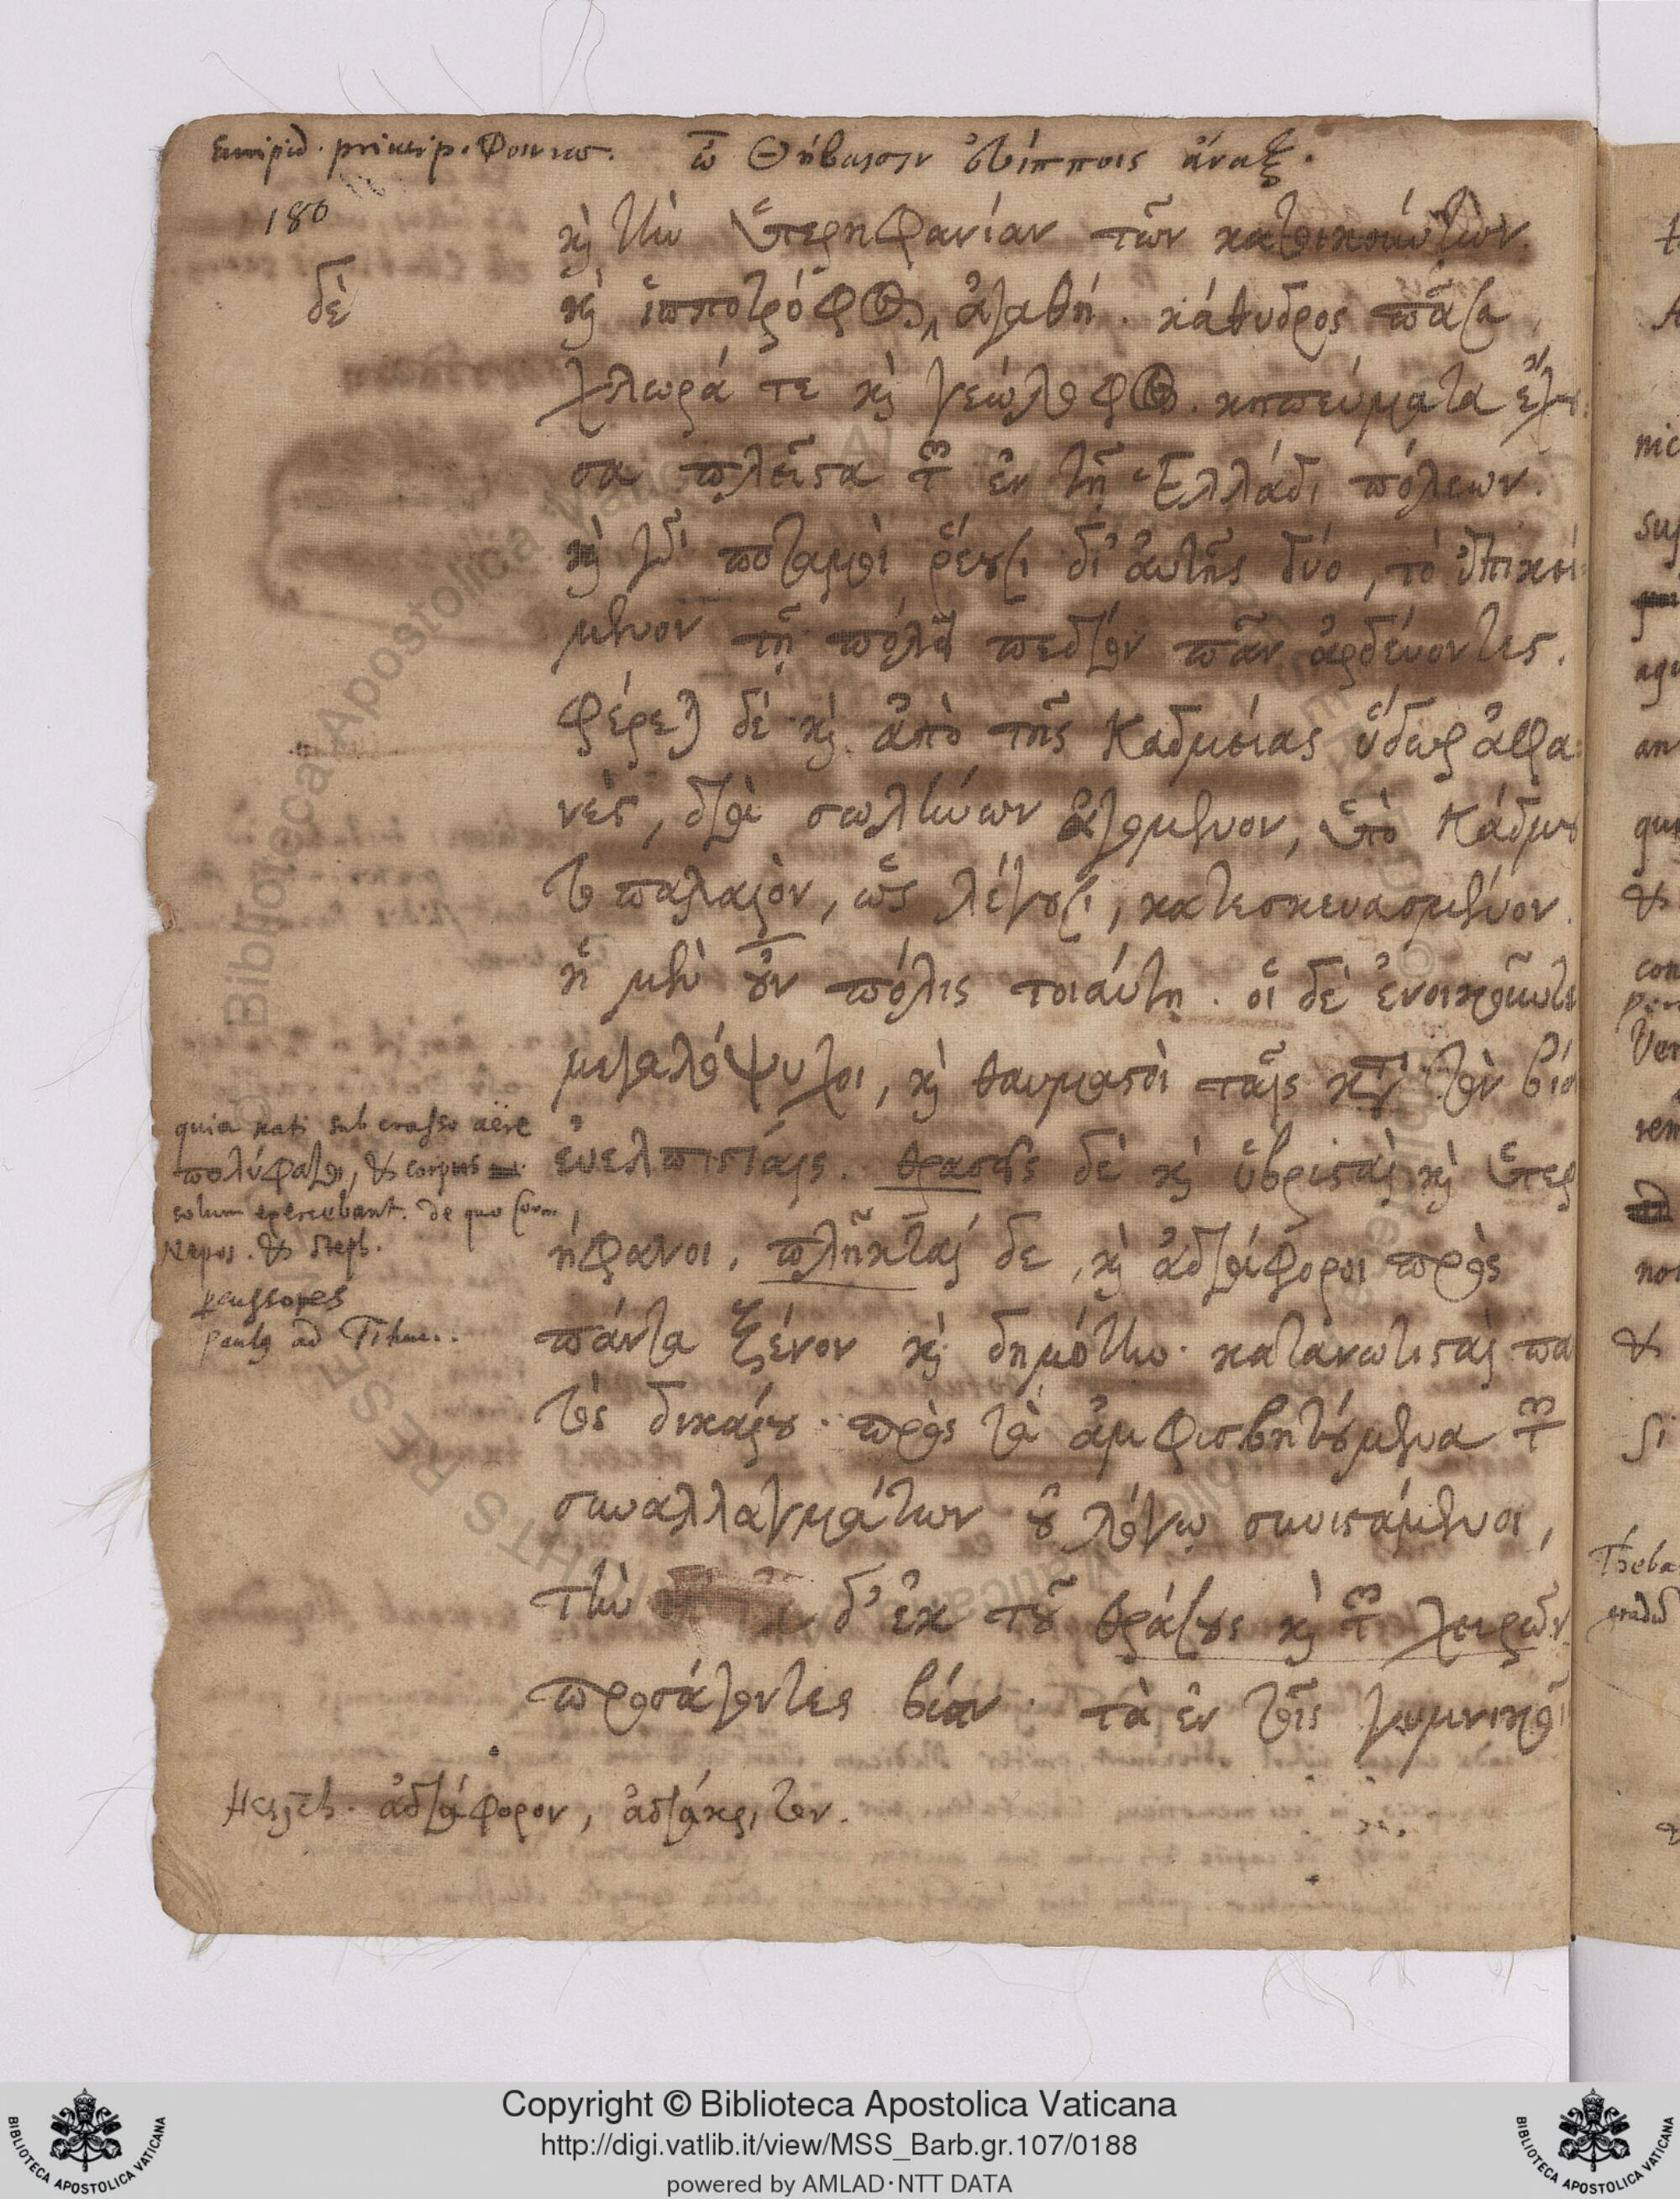 Euripid. princip. Φοινισ. ὦ Θήβαισιν εὐίπποις ἄναξ.
180
καὶ τὴν ὑπερηφανίαν τῶν κατοικούντων.
δὲ
καὶ ἱπποτρόφος ἀγαθή. κάθυδρος πᾶσα,
χλωρά τε καὶ γεώλοφος. κηπεύματα ἔχου-
σα πλεῖστα τῶν ἐν τῇ Ἑλλάδι πόλεων.
καὶ γὰρ ποταμοὶ ῥέουσι δι' αὐτῆς δύο, τὸ ὑπικεί-
μενον τῇ πόλει πεδίον πᾶν ἀρδεύοντες.
φέρεται δὲ καὶ ἀπὸ τῆς Καδμείας ὕδωρ ἀφα-
νὲς, διὰ σωλήνων ἀγόμενον, ὑπὸ Κάδμου
τὸ παλαιὸν, ὡς λέγουσι, κατεσκευασμένον.
ἡ μὲν οὖν πόλις τοιαύτη. οἱ δὲ ἐνοικοῦντε
μεγαλόψυχοι, καὶ θαυμαστοὶ ταῖς κατὰ τὸν βίο
quia nati sub crasso aëre
εὐελπιστίαις. θρασεῖς δὲ καὶ ὑβρισταὶ καὶ ὑπερ
πολύφαγοι, & corpus
solum exercebant. de quo Corn.
ήφανοι. πλῆκταί δε, καὶ ἀδιάφοροι πρὸς
Nepos. & Steph.
percussores
Paulus ad Titum..
πάντα ξένον καὶ δημότην. κατανωτισταὶ πα
τὸς δικαίου. πρὸς τὰ ἀμφισβητούμενα τῶν
συναλλαγμάτων οὐ λόγῳ συνιστάμενοι,
τὴν δ' ἐκ τοῦ θράσους καὶ τῶν χειρῶν
προσάγοντες βίαν. τὰ ἐν τοῖς γυμνικοῖ
Hesych. ἀδιάφορον, ἀδιάκριτον.
Copyright © Biblioteca Apostolica Vaticana
http://digi.vatlib.it/view/MSS_Barb.gr.107/0188
powered by AMLAD·NTT DATA
BIBLIOTECA APOSTOLICA VATICANA
BIBLIOTECA APOSTOLICA VATICANA